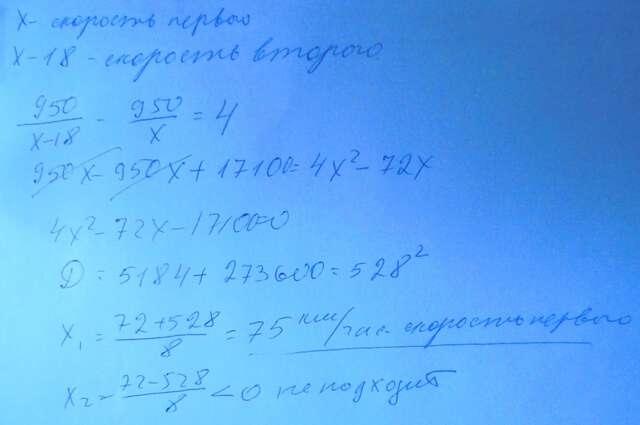 x - скорость первого
x-18 - скорость второго
950/x-18 - 950/x = 4
950x - 950x + 17100 = 4x² - 72x
4x² - 72x - 17100=0
D = 5184 + 273600 = 528²
x₁ = 72+528/8 = 75 км/час скорость первого
x₂ = 72-528/8 < 0 не подходит